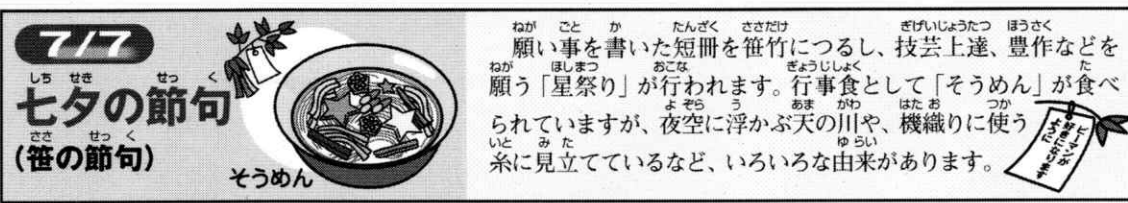 7/7
七夕の節句
(笹の節句)
そうめん
願い事を書いた短冊を笹竹につるし、技芸上達、豊作などを
願う「星祭り」が行われます。行事食として「そうめん」が食べ
られていますが、夜空に浮かぶ天の川や、機織りに使う
糸に見立てているなど、いろいろな由来があります。
ピーマンが
好きになります
ように